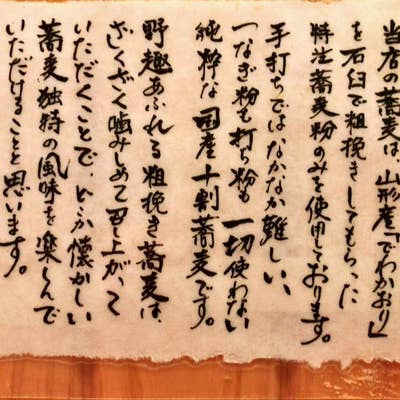 当店の蕎麦は、山形産「でわかおり」
を石臼で粗挽きしてもらった
特注蕎麦粉のみを使用しております。
手打ちではなかなか難しい、
つなぎ粉も打ち粉も一切使わない
純粋な国産十割蕎麦です。
野趣あふれる粗挽き蕎麦は、
ざくざく噛みしめて召し上がって
いただくことで、どこか懐かしい
蕎麦独特の風味を楽しんで
いただけることと思います。